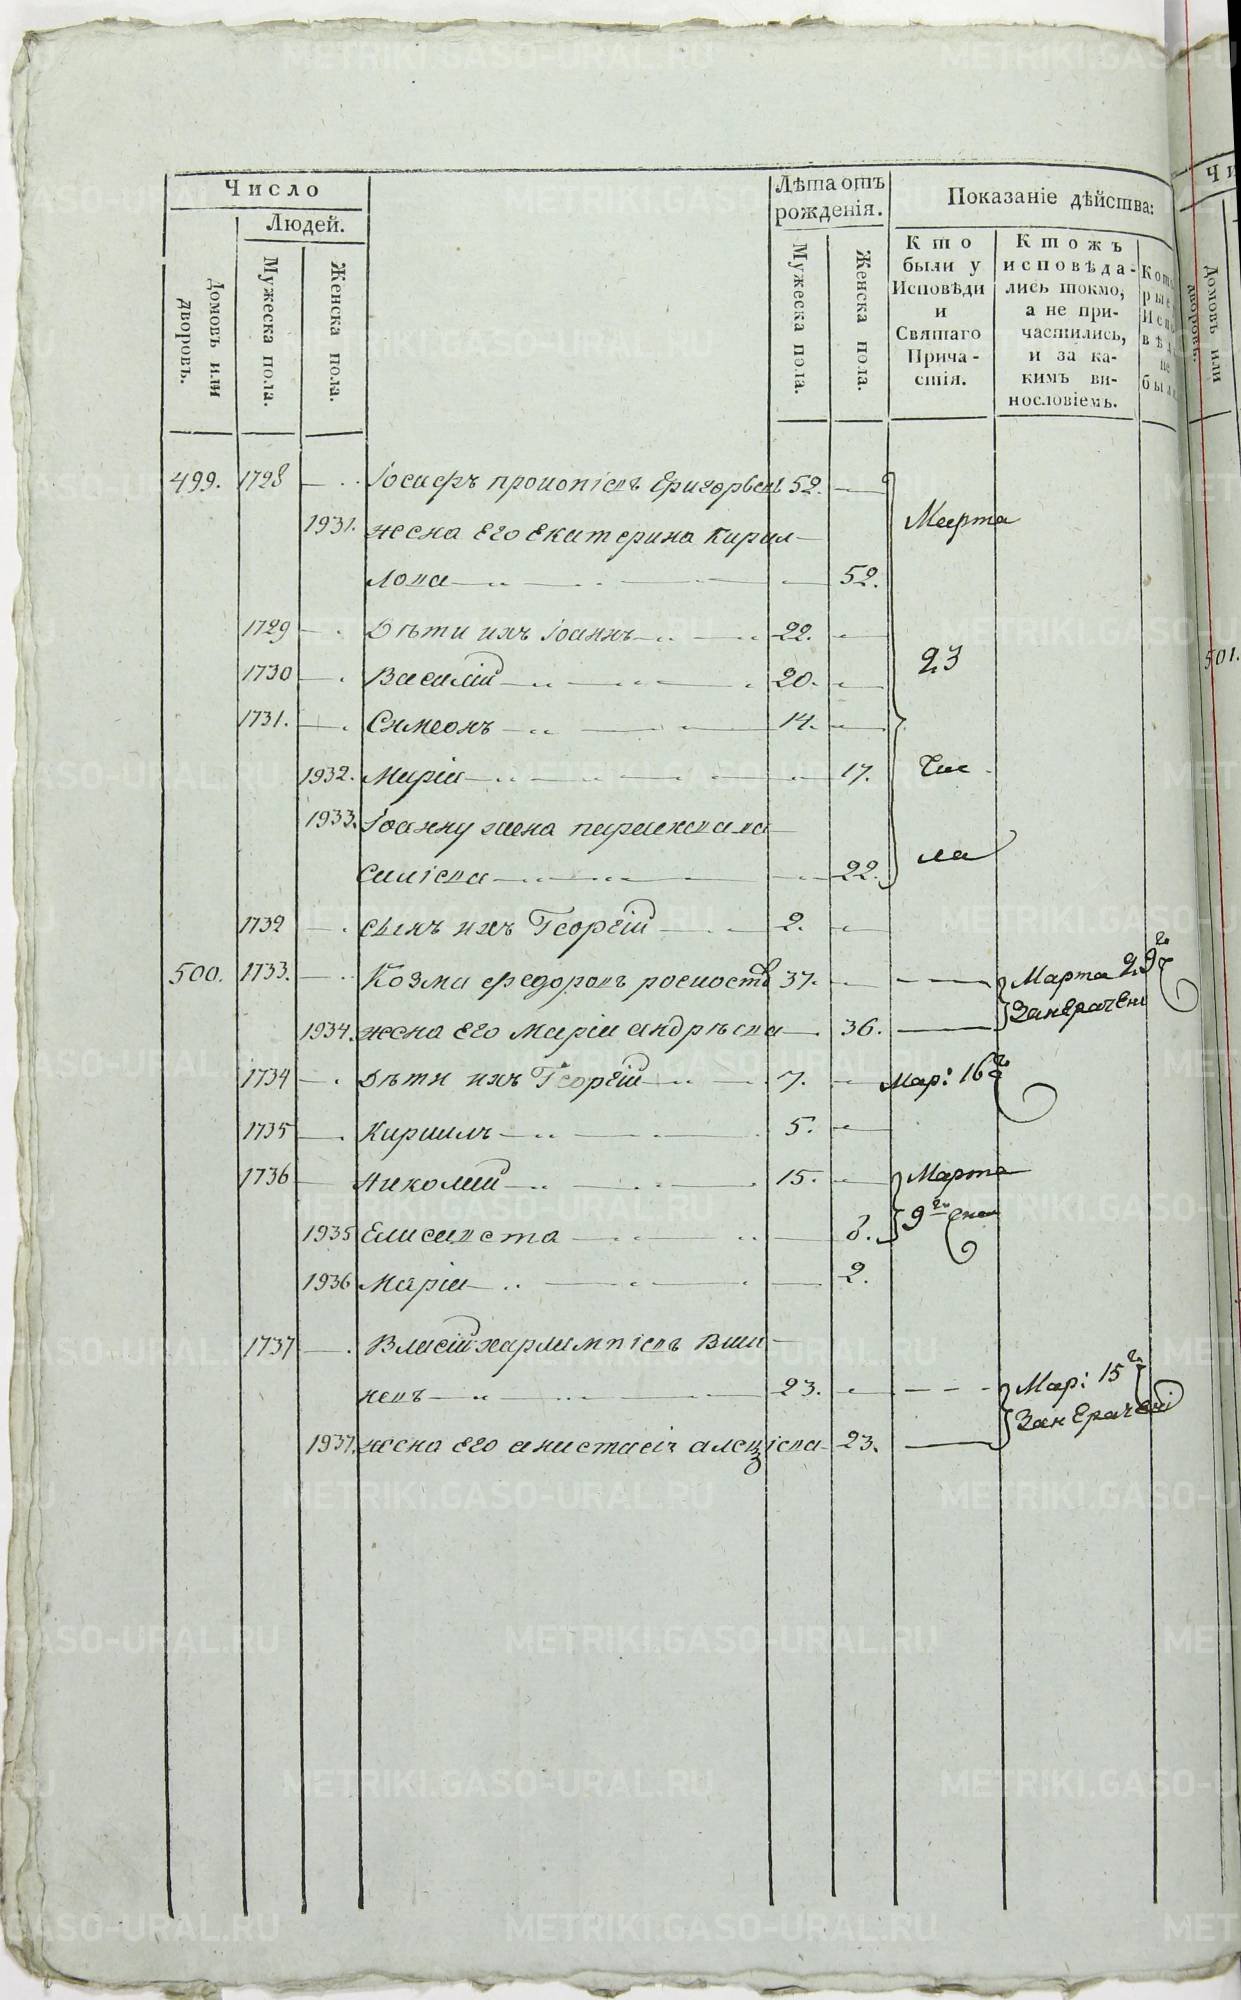 Число
Людей.
Домовъ или дворовъ.
Мужеска пола.
Женска пола.
Лѣта отъ рожденія.
Мужеска пола.
Женска пола.
Показаніе дѣйства:
Кто были у Исповѣди и Святаго Причастія.
Ктожъ исповѣдались токмо, а не причастились, и за какимъ винословіемъ.
499. 1728 Іосифъ Прокопіевъ Григорьевъ 52.
1931. жена его Екатерина Кирил-
лова 52.
1729 Дѣти ихъ Іоаннъ 22.
1730 Василій 20.
1731. Симеонъ 14.
1932. Марія 17.
1933. Іоанну жена Параскева Ва-
силіева 22.
Марта
23
чис-
ла
1732 сынъ ихъ Георгій 2.
500. 1733. Козма Федоровъ 37.
Марта 29го
Занерачені
1934. жена его Марія Андрѣева 36.
1734 Дѣти ихъ Георгій 7. Мар: 16го
1735 Кириллъ 5.
1736 Николай 15.
Марта
9го
1935 Елисавета 8.
1936 Марія 2.
1737 Власій Харлампіевъ
23.
Мар: 15го
Занерачені
1937. жена его Анастасія 23.
501.
METRIKI.GASO-URAL.RU